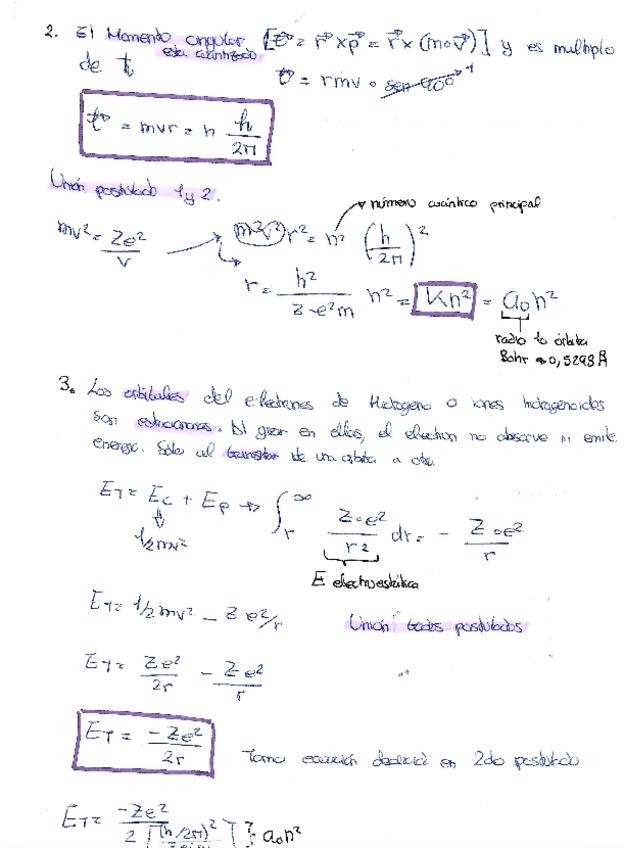 2. El Momento angular [ℓ→ = r→ x p→ = r→ x (m∘v→)] y es multiplo
esta cuantizado
de ħ
ℓ→ = rmv ∘ sen 90° 1
ℓ→ = mvr = n h/2π
Unión postulado 1 y 2.
número cuántico principal
mv² = Ze²/r → m²v²r² = n² (h/2π)²
r = h²/Z·e²m n² = Kn² = a₀n²
radio 1a órbita
Bohr → 0,5298 Å
3. Los orbitales del electrones de Hidrogeno o iones hidrogenoides
son estacionarios. Al girar en ellos, el electron no absorve ni emite
energia. Sólo al transitar de una orbita a otra
E_T = E_c + E_p → ∫_r^∞ Z∘e²/r² dr = - Z∘e²/r
1/2mv²
E electroestática
E_T = 1/2 mv² - Ze²/r
Unión todos postulados
E_T = Ze²/2r - Ze²/r
E_T = -Ze²/2r
Tomo ecuación deducida en 2do postulado
E_T = -Ze²/2[(h/2π)²/Ze²m] } a₀n²